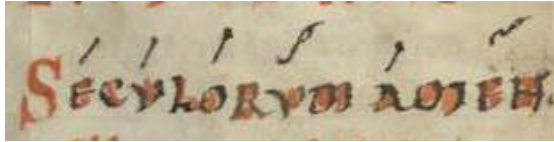 SECULORUM AMEN.